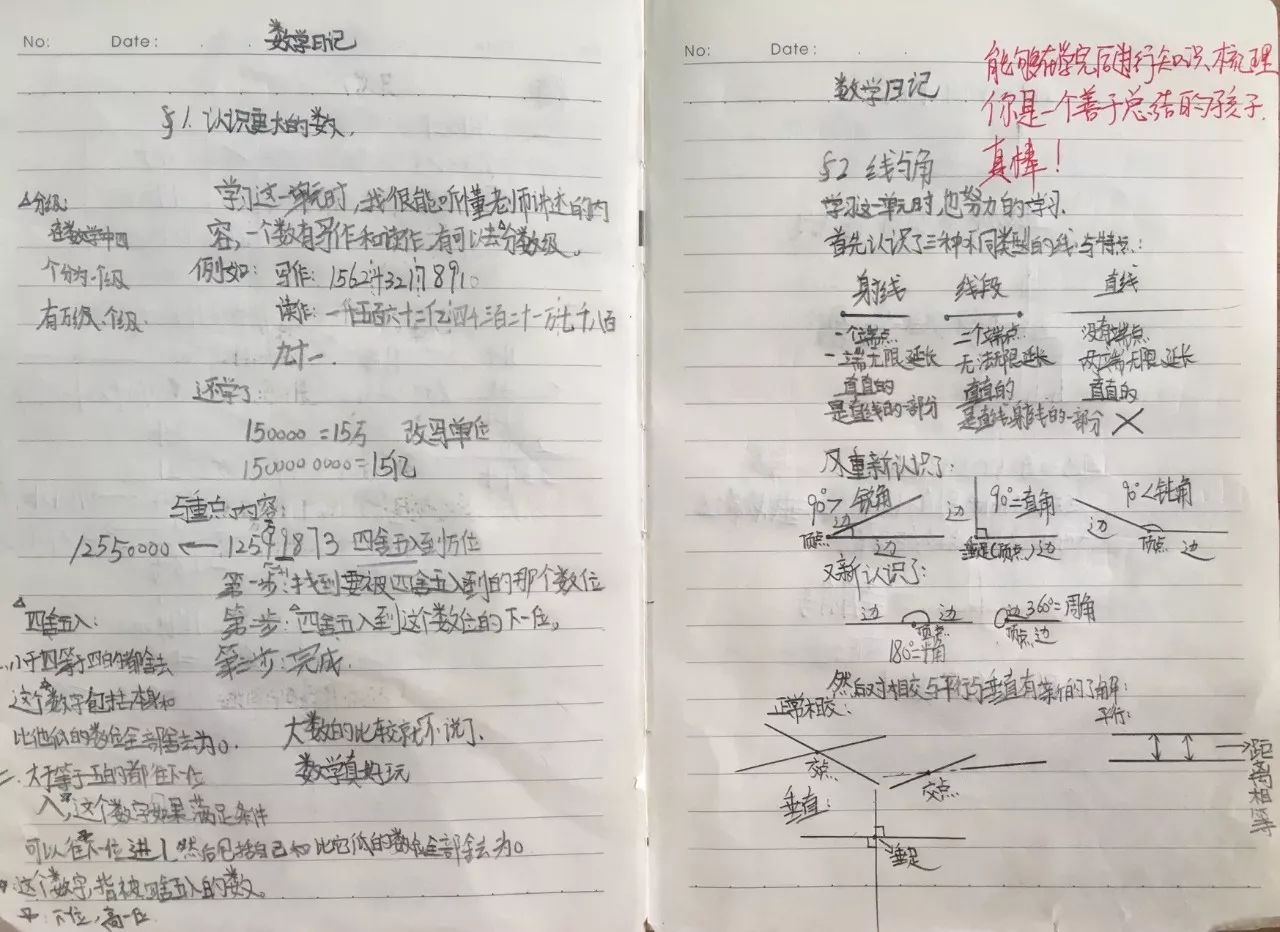 No: Date: 数学日记
§1. 认识更大的数.
学习这一单元时,我很能听懂老师讲述的内
容,一个数有写作和读作,有可以去分数级。
例如: 写作: 1562432178910
九十一.
还学了
150000=15万 改写单位
1500000000=15亿
与重点内容:
12550000 ← 12549873 四舍五入到万位
第一步:找到要被四舍五入到的那个数位
第二步:四舍五入到这个数位的下一位。
第三步:完成.
大数的比较就不说了.
数学真好玩
△分级:
在数学中四
个分为一个级
有万级、个级.
△四舍五入:
一.小于四等于四的都舍去
这个数字包括本身和
比他低的数位全部舍去为0.
二.大于等于五的都往下一位
入,这个数字如果满足条件
可以往下一位进1然后包括自己和比它低的数位全部舍去为0
*这个数字,指被四舍五入的数。
下一位,高一位
No: Date:
数学日记
能够在学完后进行知识梳理
你是一个善于总结的孩子.
真棒!
§2 线与角
学习这一单元时,也努力的学习.
首先认识了三种不同类型的线与特点:
射线 线段 直线
一个端点 二个端点 没有端点
一端无限延长 无法无限延长 两端无限延长
直直的 直直的 直直的
是直线的一部分 是直线射线的一部分
又重新认识了:
90°>锐角 边 边 顶点
90°=直角 边 垂足(顶点) 边
90°<钝角 边 顶点 边
又新认识了:
边 边 顶点 180°=平角
边 360°=周角 顶点 边
然后对相交与平行与垂直有新的了解:
正常相交: 平行:
交点 交点 距离相等
垂直:
垂足